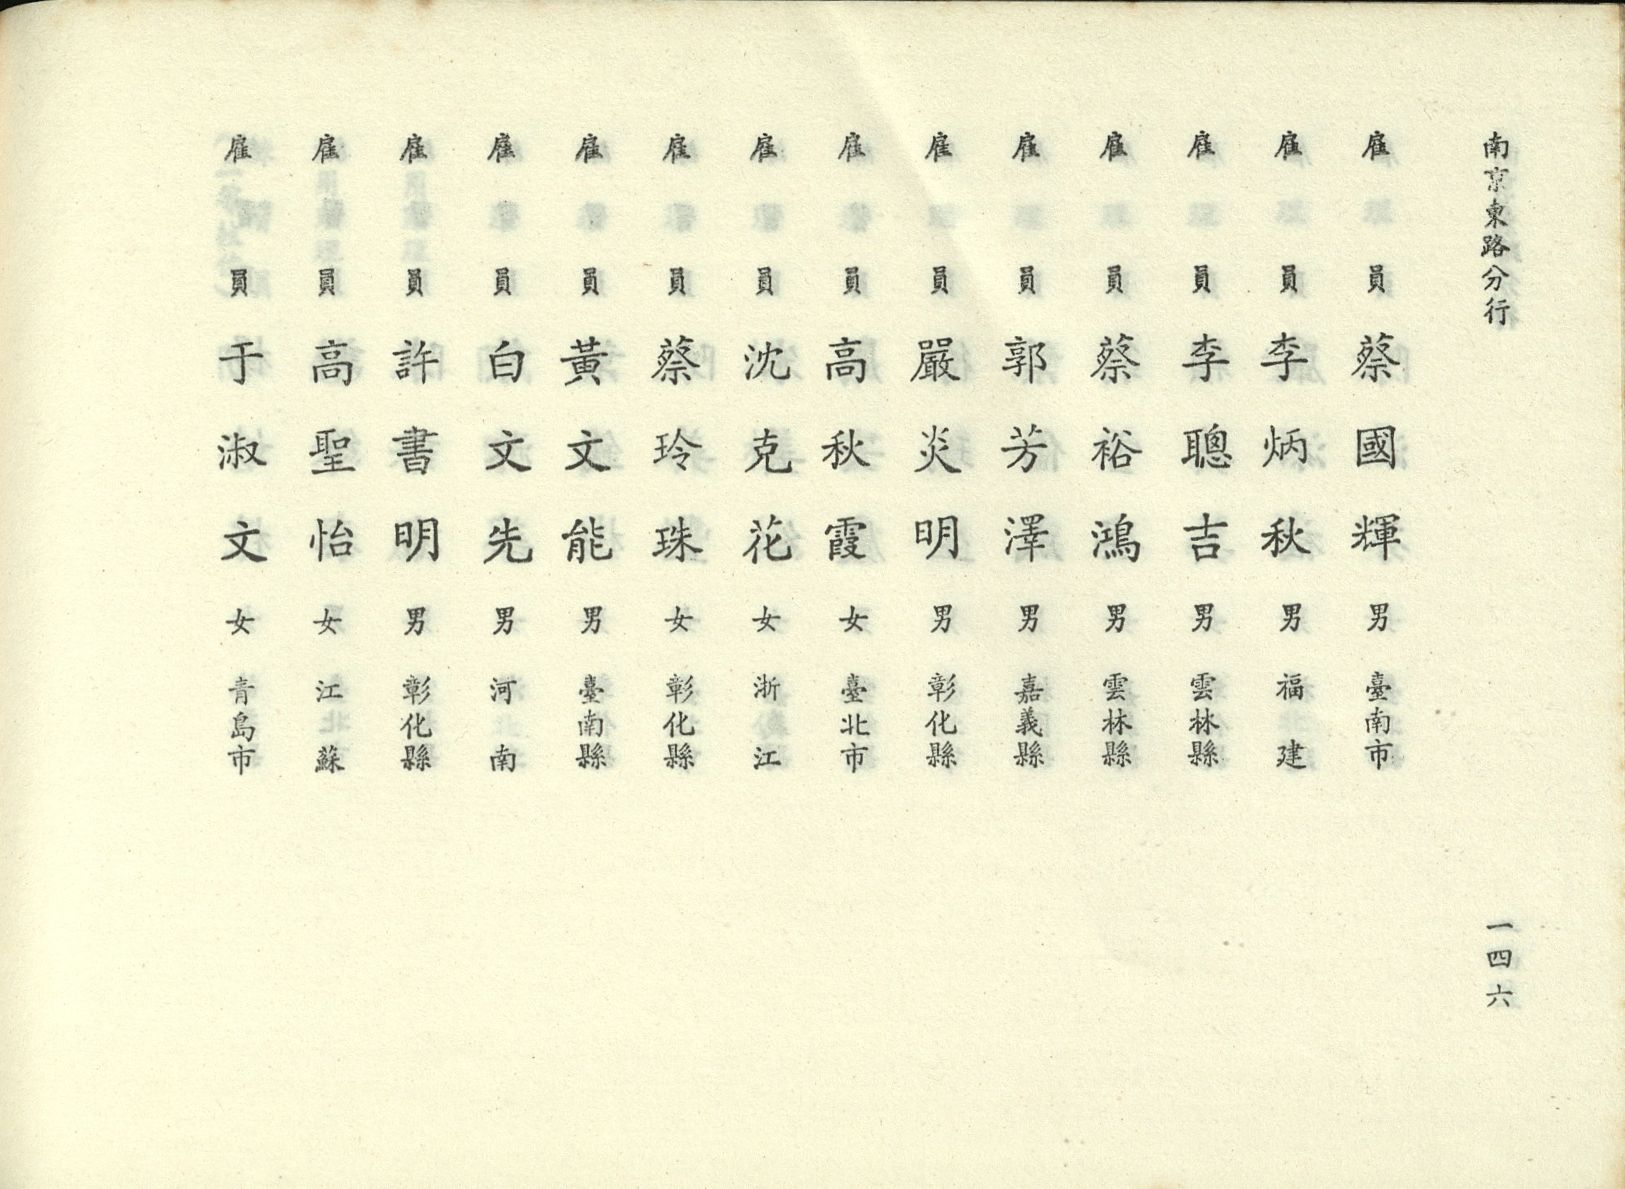 南京東路分行
一四六
雇員 蔡國輝 男 臺南市
雇員 李炳秋 男 福建
雇員 李聰吉 男 雲林縣
雇員 蔡裕鴻 男 雲林縣
雇員 郭芳澤 男 嘉義縣
雇員 嚴炎明 男 彰化縣
雇員 高秋霞 女 臺北市
雇員 沈克花 女 浙江
雇員 蔡玲珠 女 彰化縣
雇員 黃文能 男 臺南縣
雇員 白文先 男 河南
雇員 許書明 男 彰化縣
雇員 高聖怡 女 江蘇
雇員 于淑文 女 青島市